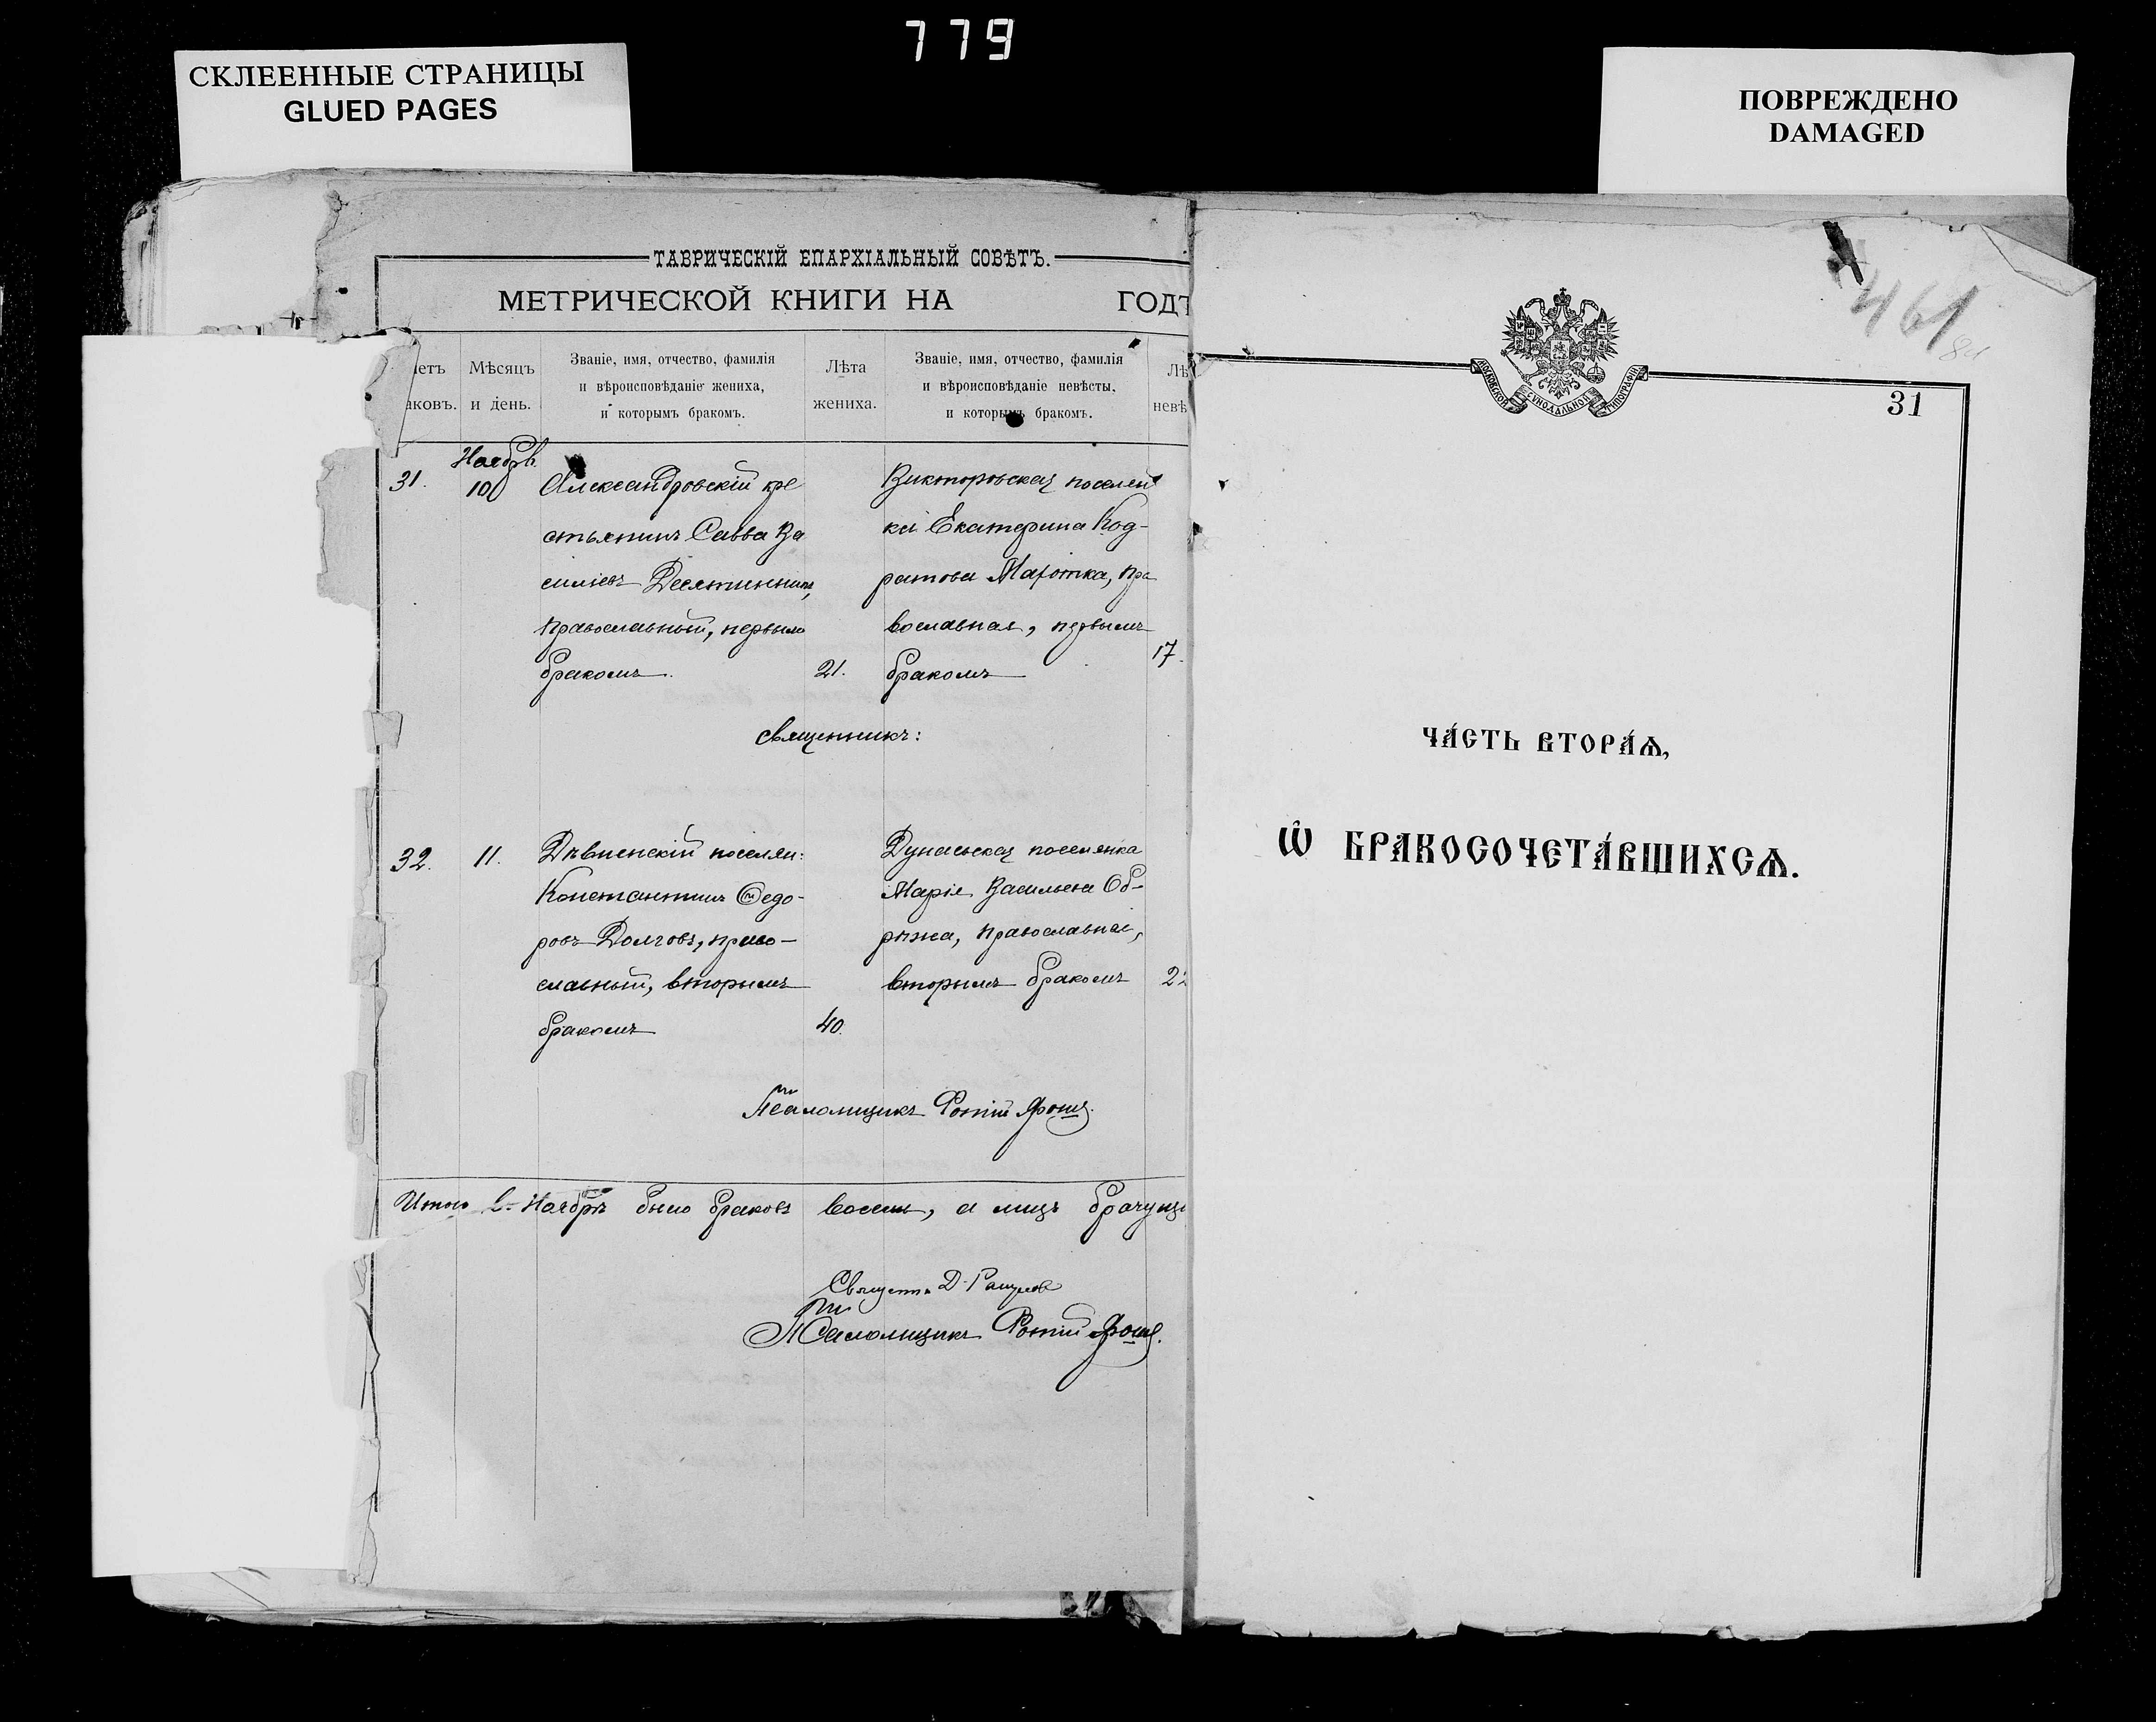 779
СКЛЕЕННЫЕ СТРАНИЦЫ
GLUED PAGES
ПОВРЕЖДЕНО
DAMAGED
ТАВРИЧЕСКІЙ ЕПАРХІАЛЬНЫЙ СОВѢТЪ.
МЕТРИЧЕСКОЙ КНИГИ НА ГОДЪ
Мѣсяцъ и день.
Званіе, имя, отчество, фамилія
и вѣроисповѣданіе жениха,
и которымъ бракомъ.
Лѣта
жениха.
Званіе, имя, отчество, фамилія
и вѣроисповѣданіе невѣсты,
и которымъ бракомъ.
31.
10
Александровскій кре
стьянинъ Савва Ва
сильевъ
православный, первымъ
бракомъ.
21.
Викторовская поселян
ка Екатерина Код-
ратова пра
вославная, первымъ
бракомъ
17.
священникъ:
32.
11.
поселян:
Константинъ Ѳедо-
ровъ Долговъ, право-
славный, вторымъ
бракомъ
40.
Дунаевская поселянка
Марія Васильева Об-
православная,
вторымъ бракомъ
Псаломщикъ Фотій
Итого в Ноябрѣ было браковъ восемь, а лицъ
Псаломщикъ Фотій
461
МОСКОВСКОЙ СѴНОДАЛЬНОЙ ТИПОГРАФІИ
31
ЧА́СТЬ ВТОРА́Ѧ,
Ѽ БРАКОСОЧЕТА́ВШИХСѦ.